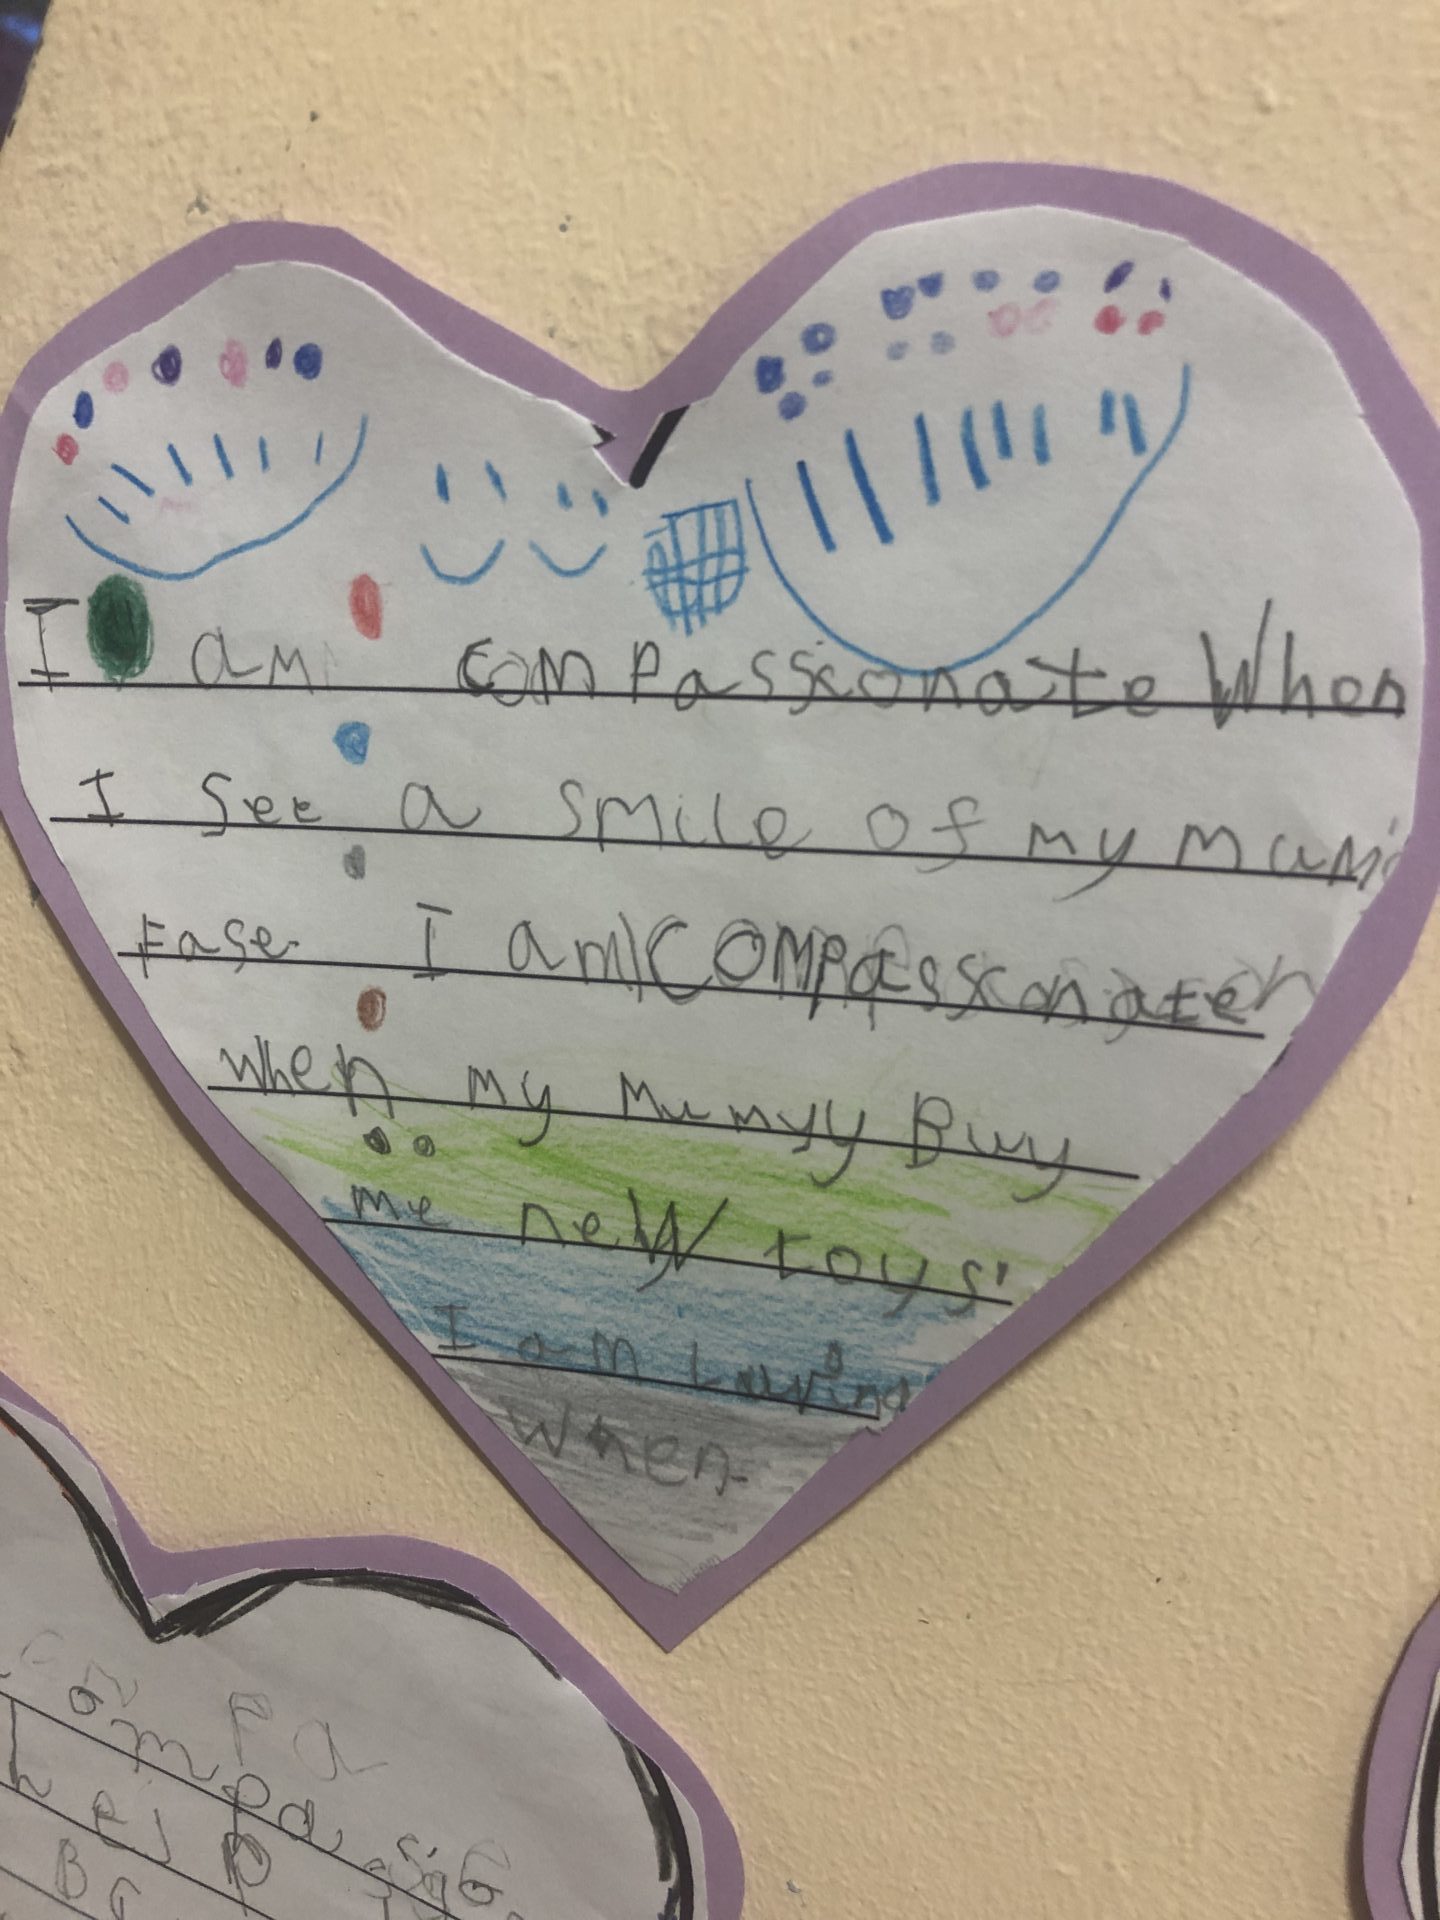 I am compassionate When
I see a smile of my mum
Fase I am compassionate
when my mumyy Buy
me new toys
I am Loving
when
compa
B